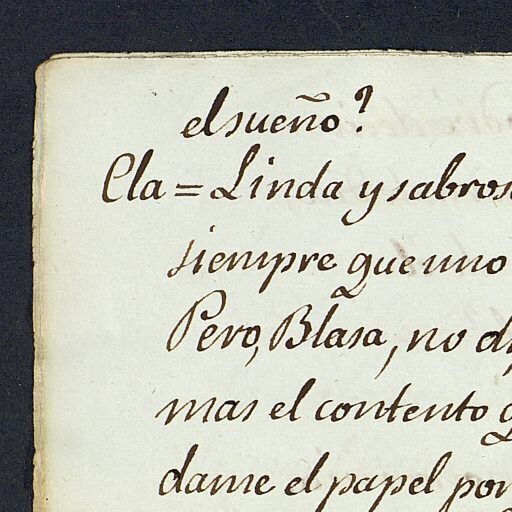 el sueño?
Cla = Linda y sabros
siempre que uno
Pero, Blasa, no d
mas el contento q
dame el papel por